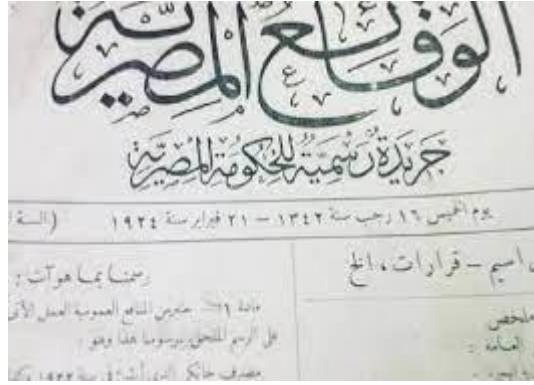 الوقائع المصرية
جريدة رسمية للحكومة المصرية
يوم الخميس ١٦ رجب سنة ١٣٤٢ — ٢١ فبراير سنة ١٩٢٤ (السنة
اسيم — قرارات، الخ
ملخص
العامة :
رسمنا بما هو آت :
مادة ١ — المنافع العمومية العمل الآتى
على الرسم الملحق بمرسومنا هذا وهو :
مصرف سنة ١٩٢٢